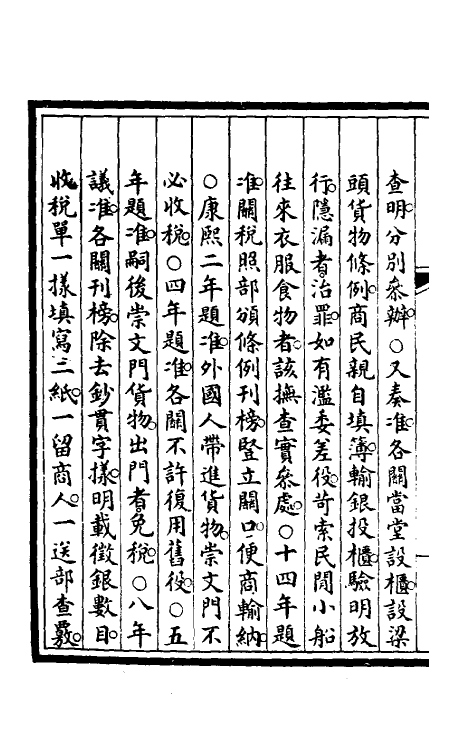 查明分別叅辦○又奏准各關當堂設櫃設梁
頭貨物條例商民親自填簿輸銀投櫃驗明放
行隱漏者治罪如有濫委差役苛索民間小船
往來衣服食物者該撫查實叅處○十四年題
准關稅照部頒條例刊榜豎立關口便商輸納
○康熙二年題准外國人帶進貨物崇文門不
必收稅○四年題准各關不許復用舊役○五
年題准嗣後崇文門貨物出門者免稅○八年
議准各關刊榜除去鈔貫字樣明載徵銀數目
收稅單一樣填寫三紙一留商人一送部查覈